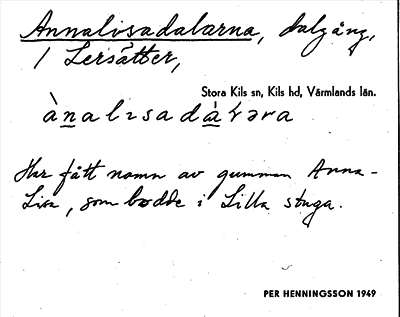 Annalisadalarna, dalgång,
/ Lersätter,
Stora Kils sn, Kils hd, Värmlands län.
ànalɪsadàɽəra
Har fått namn av gumman Anna-
Lisa, som bodde i Lilla stuga.
PER HENNINGSSON 1949